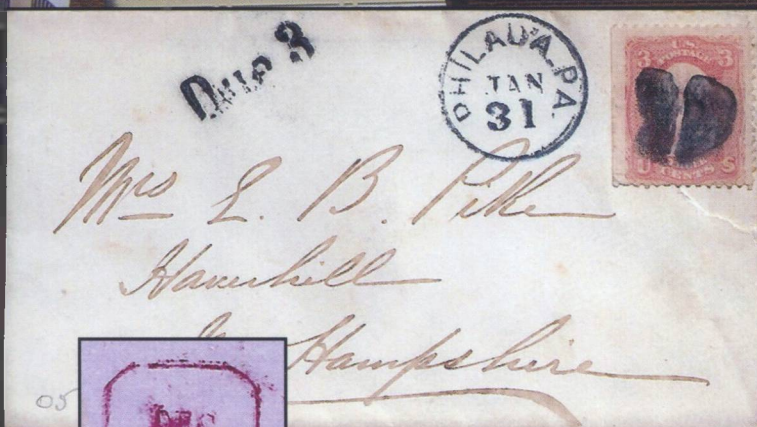 Due 3
PHILAD'A. PA.
JAN
31
3 U.S. 3
POSTAGE
CENTS
U S
Mrs L. B. Pike
Haverhill
Hampshire
05